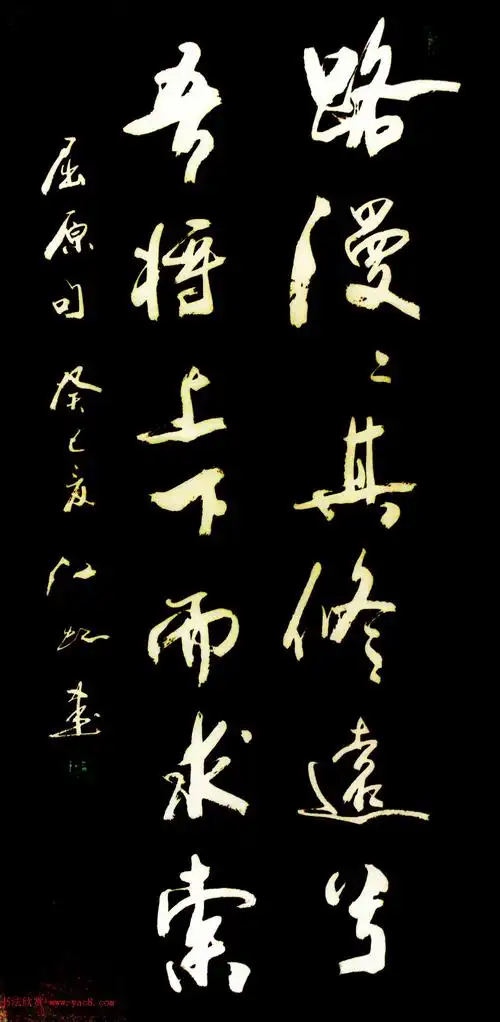 路漫〻其修遠兮
吾将上下而求索
屈原句 癸巳夏 書
书法欣赏 www.yac8.com